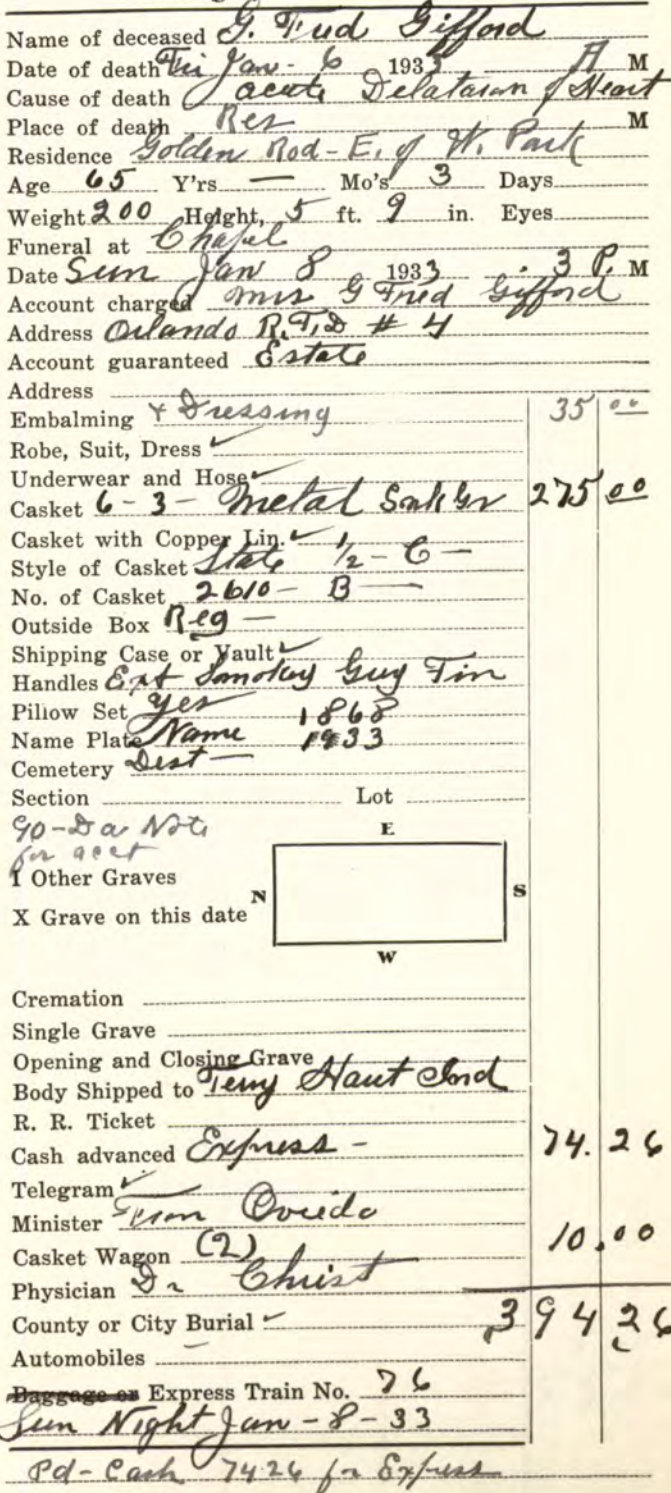 Name of deceased G. Fred Gifford
Date of death Fri Jan - 6 1933 A M
Cause of death acute Delatasan of Heart
Place of death Res M
Residence Golden Rod - E. of W. Park
Age 65 Y'rs — Mo's 3 Days
Weight 200 Height, 5 ft. 9 in. Eyes
Funeral at Chapel
Date Sun Jan 8 1933 3 P. M
Account charged Mrs G Fred Gifford
Address Orlando R.F.D # 4
Account guaranteed Estate
Address
Embalming & Dressing 35 00
Robe, Suit, Dress ✓
Underwear and Hose ✓
Casket 6 - 3 - Metal 275 00
Casket with Copper Lin. ✓
Style of Casket State 1/2 - C -
No. of Casket 2610 - B —
Outside Box Reg —
Shipping Case or Vault ✓
Handles Ext Smokey Tin
Pillow Set Yes 1868
Name Plate Name 1933
Cemetery Dest —
Section Lot
90 - Da Note
for acct
E
I Other Graves
N S
X Grave on this date
W
Cremation
Single Grave
Opening and Closing Grave
Body Shipped to Terry Haut Ind
R. R. Ticket
Cash advanced Express - 74.26
Telegram ✓
Minister From Oviedo
Casket Wagon (2) 10.00
Physician Dr Christ
County or City Burial ✓ 394 26
Automobiles —
Baggage or Express Train No. 76
Sun Night Jan - 8 - 33
Pd - Cash 74.26 for Express